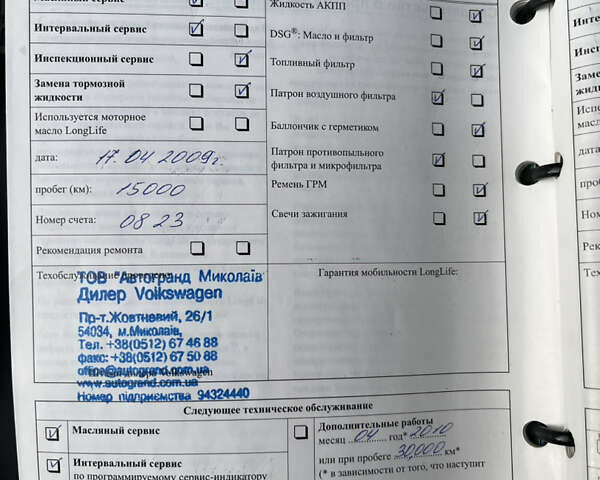 Масляный сервис
Интервальный сервис
Инспекционный сервис
Замена тормозной
жидкости
Используется моторное
масло LongLife
дата: 17.04 2009г.
пробег (км): 15000
Номер счета: 0823
Рекомендация ремонта
Жидкость АКПП
DSG®: Масло и фильтр
Топливный фильтр
Патрон воздушного фильтра
Баллончик с герметиком
Патрон противопыльного
фильтра и микрофильтра
Ремень ГРМ
Свечи зажигания
Техобслуживание
ТОВ "Автогранд Миколаїв
Дилер Volkswagen
Пр-т.Жовтневий, 26/1
54034, м.Миколаїв,
Тел. +38(0512) 67 46 88
факс: +38(0512) 67 50 88
office@autogrand.com.ua
Volkswagen
www.autogrand.com.ua
Номер підприємства 94324440
Гарантия мобильности LongLife:
Следующее техническое обслуживание
Масляный сервис
Интервальный сервис
по программируемому сервис-индикатору
Дополнительные работы
месяц 04 год* 2010
или при пробеге 30,000 км*
(* в зависимости от того, что наступит
Инте
Инсп
Заме
жидк
Испо
масл
дата
проб
Ном
Рек
Тех